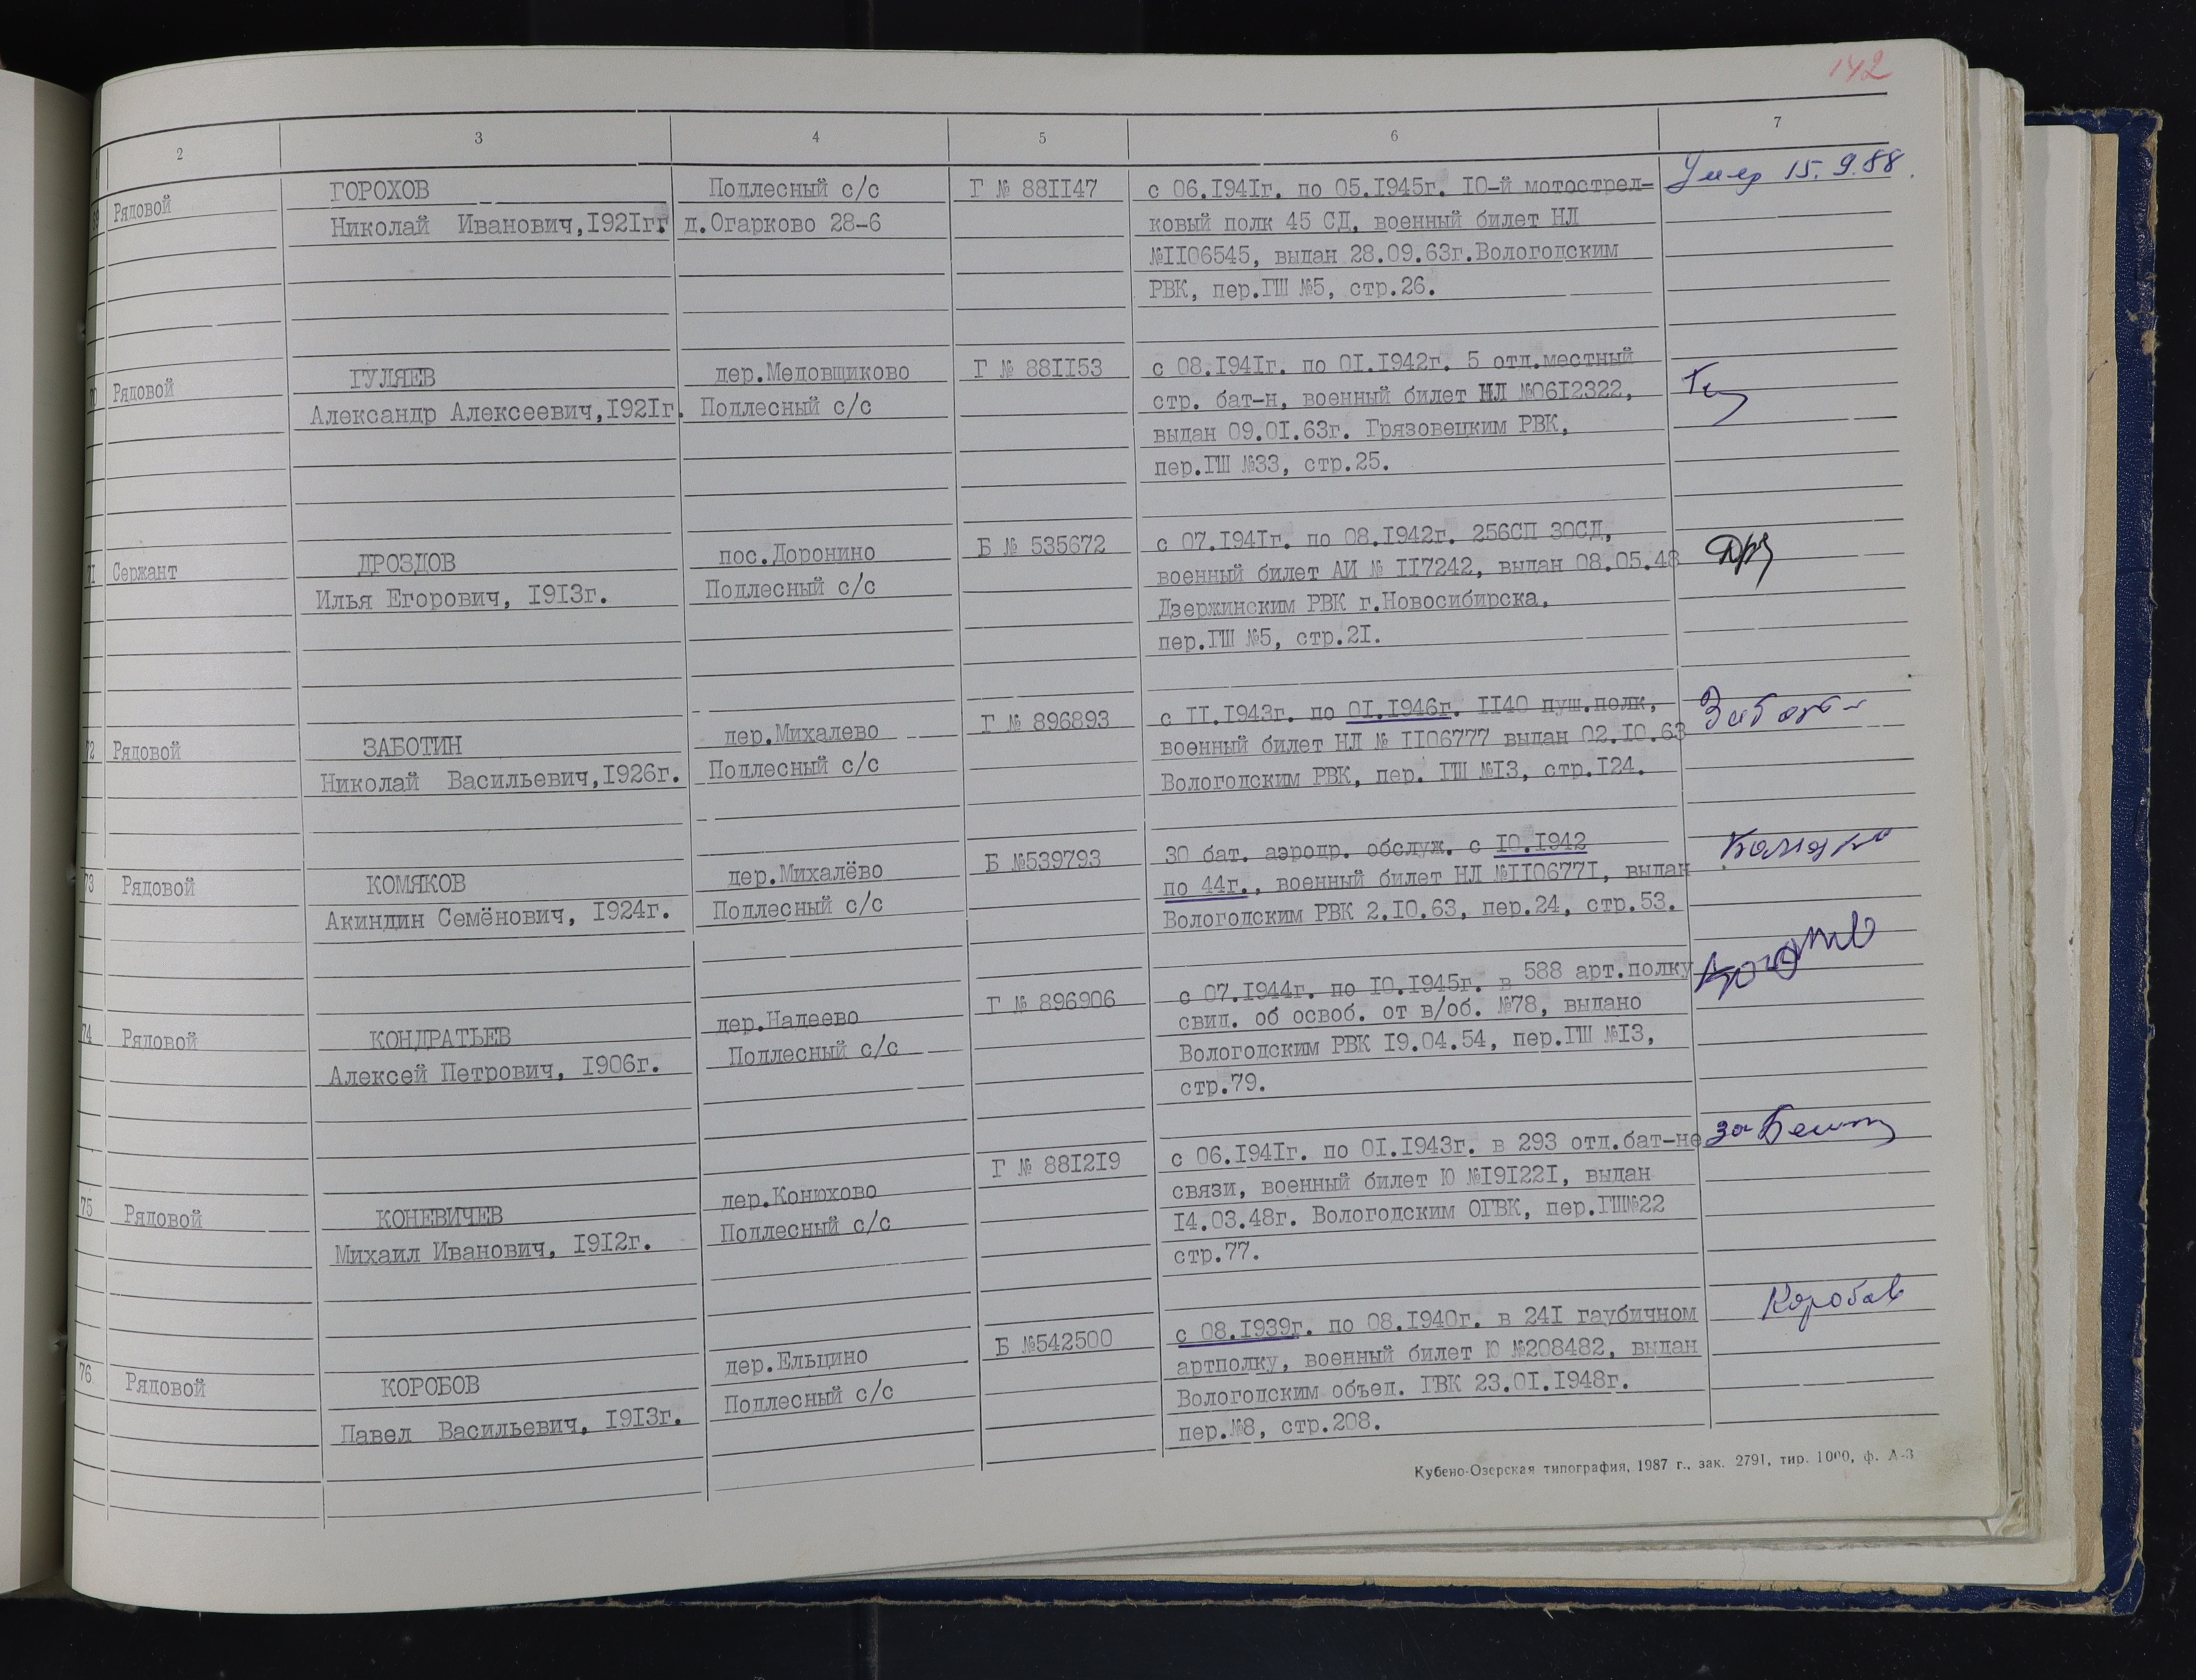 142
2 3 4 5 6 7
Рядовой ГОРОХОВ Подлесный с/с Г № 881147 с 06.1941г. по 05.1945г. 10-й мотострел- Умер 15.9.88.
Николай Иванович,1921гг д.Огарково 28-6 ковый полк 45 СД, военный билет НЛ
№1106545, выдан 28.09.63г.Вологодским
РВК, пер.ГШ №5, стр.26.
70 Рядовой ГУЛЯЕВ дер.Медовщиково Г № 881153 с 08.1941г. по 01.1942г. 5 отд.местный
Александр Алексеевич,1921г. Подлесный с/с стр. бат-н, военный билет НЛ №0612322,
выдан 09.01.63г. Грязовецким РВК,
пер.ГШ №33, стр.25.
71 Сержант ДРОЗДОВ пос.Доронино Б № 535672 с 07.1941г. по 08.1942г. 256СП 30СД,
Илья Егорович, 1913г. Подлесный с/с военный билет АИ № 117242, выдан 08.05.48
Дзержинским РВК г.Новосибирска,
пер.ГШ №5, стр.21.
72 Рядовой ЗАБОТИН дер.Михалево Г № 896893 с 11.1943г. по 01.1946г. 1140 пуш.полк,
Николай Васильевич,1926г. Подлесный с/с военный билет НЛ № 1106777 выдан 02.10.63
Вологодским РВК, пер. ГШ №13, стр.124.
73 Рядовой КОМЯКОВ дер.Михалёво Б №539793 30 бат. аэродр. обслуж. с 10.1942
Акиндин Семёнович, 1924г. Подлесный с/с по 44г., военный билет НЛ №1106771, выдан
Вологодским РВК 2.10.63, пер.24, стр.53.
74 Рядовой КОНДРАТЬЕВ дер.Надеево Г № 896906 с 07.1944г. по 10.1945г. в 588 арт.полку
Алексей Петрович, 1906г. Подлесный с/с свид. об освоб. от в/об. №78, выдано
Вологодским РВК 19.04.54, пер.ГШ №13,
стр.79.
75 Рядовой КОНЕВИЧЕВ дер.Конюхово Г № 881219 с 06.1941г. по 01.1943г. в 293 отд.бат-не за
Михаил Иванович, 1912г. Подлесный с/с связи, военный билет Ю №191221, выдан
14.03.48г. Вологодским ОГВК, пер.ГШ№22
стр.77.
76 Рядовой КОРОБОВ дер.Ельцино Б №542500 с 08.1939г. по 08.1940г. в 241 гаубичном Коробов
Павел Васильевич, 1913г. Подлесный с/с артполку, военный билет Ю №208482, выдан
Вологодским объед. ГВК 23.01.1948г.
пер.№8, стр.208.
Кубено-Озерская типография, 1987 г., зак. 2791, тир. 1000, ф. А-3